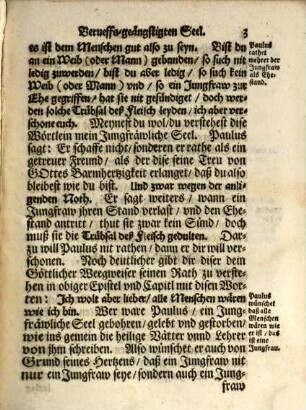 Beruffs-geängstigten Seel. 3
es ist dem Menschen gut also zu seyn. Bist du
an ein Weib (oder Mann) gebunden/ so such nit
ledig zuwerden/ bist du aber ledig/ so such kein
Weib (oder Mann) vnd/ so ein Jungfraw zur
Ehe gegriffen/ hat sie nit gesündiget/ doch wer-
den solche Trübsal des Fleisch leyden/ ich aber ver-
schone euch. Meynest du wol/ du verstehest dise
Wörtlein mein Jungfräwliche Seel. Paulus
sagt: Er schaffe nicht/ sonderen er rathe als ein
getreuer Freund/ als der dise seine Treu von
GOttes Barmhertzigkeit erlanget/ daß du also
bleibest wie du bist. Und zwar wegen der anli-
genden Noth. Er sagt weiters/ wann ein
Jungfraw jhren Stand verlast/ vnd den Ehe-
stand antritt/ thut sie zwar kein Sünd/ doch
muß sie die Trübsal des Fleisch gedulten. Dar-
zu will Paulus nit rathen/ dann er dir will ver-
schonen. Noch deutlicher gibt dir diser dem
Göttlicher Wegweiser seinen Rath zu verste-
hen in obiger Epistel vnd Capitl mit disen Wor-
ten: Ich wolt aber lieber/ alle Menschen wären
wie ich bin. Wer ware Paulus/ ein Jung-
fräwliche Seel gebohren/ gelebt vnd gestorben/
wie ins gemein die heilige Vätter vnnd Lehrer
von jhm schreiben. Also wünschet er auch von
Grund seines Hertzens/ daß ein Jungfraw nit
nur ein Jungfraw seye/ sondern auch ein Jung-
fraw
Paulus
rathet
mehrer der
Jungfraw
als Ehe-
stand.
Paulus
wünschet
daß alle
Menschen
wären wie
er ist/ daß
ist eine
Jungfraw.